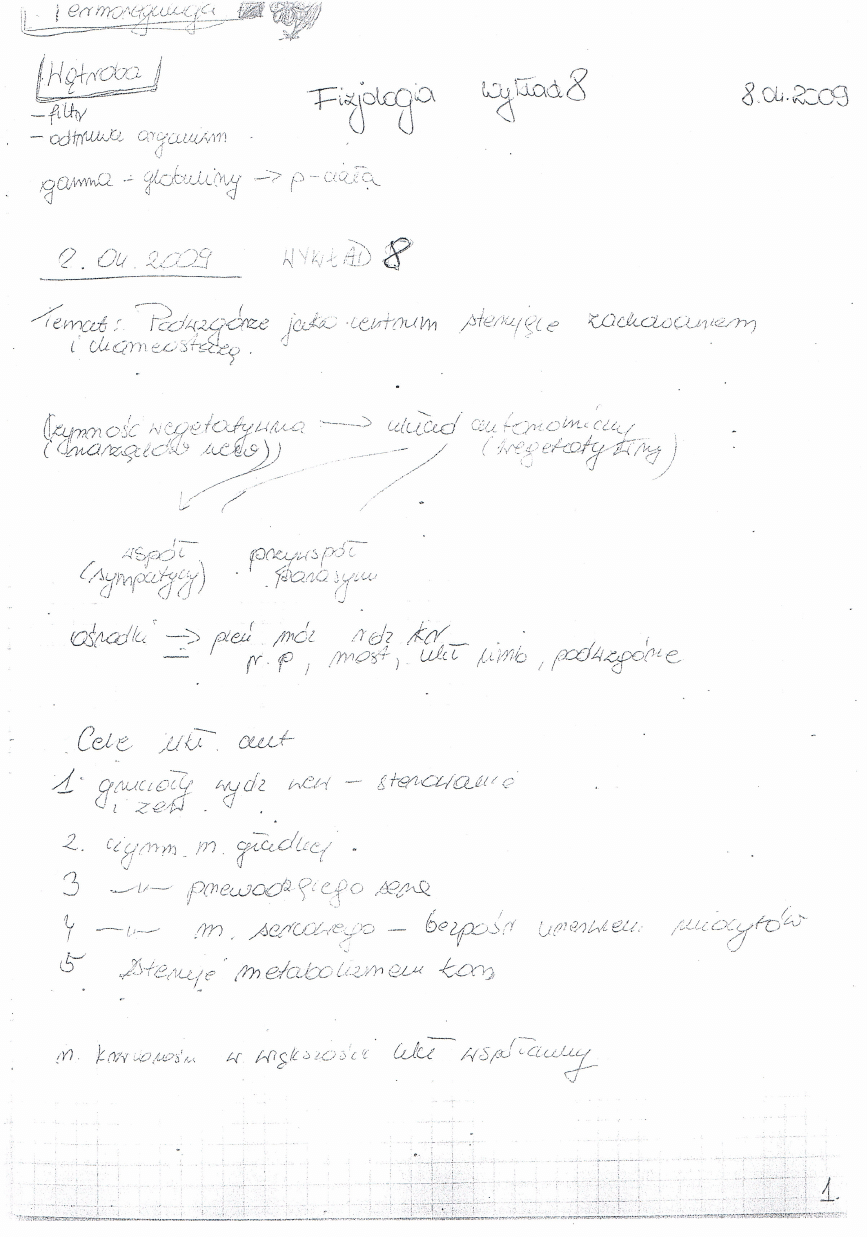 Termoregulacja
Wątroba
Fizjologia wykład 8 8.04.2009
- filtr
- odtruwa organizm
gamma - globuliny -> p-ciała
2.04.2009 WYKŁAD 8
Temat: Podwzgórze jako centrum sterujące zachowaniem
i homeostazą.
Czynność wegetatywna -> układ autonomiczny
(narządów wew) (wegetatywny)
współ przywspół
(sympatycz) parasym
ośrodki -> pień móz rdz kr
r.p, most, ukł limb, podwzgórze
Cele ukł. aut
1. gruczoły wydz wew - sterowanie
i zew.
2. czynn. m. gładkiej.
3 -"- przewodzącego serce
4 -"- m. sercowego - bezpośr unerwieni miocytów
5 Steruje metabolizmem kom
n. krwionośn w większości ukł współczulny
1.